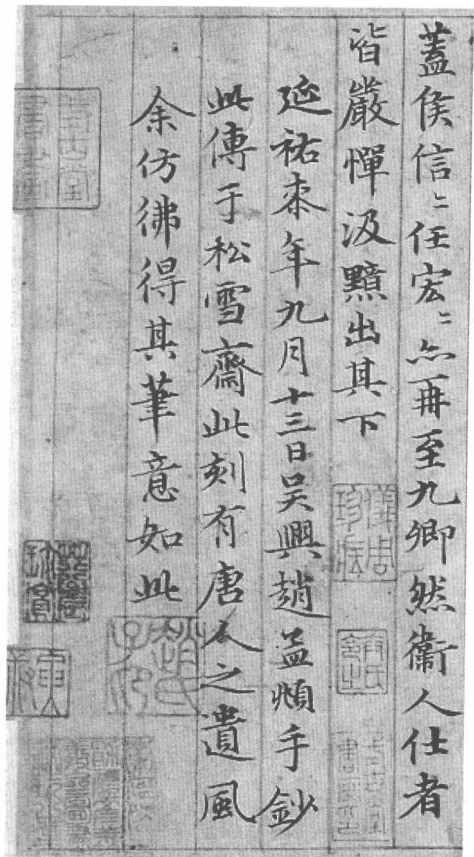 蓋侯信〻任宏〻亦再至九卿然衞人仕者
皆嚴憚汲黯出其下
延祐桼年九月十三日吳興趙孟頫手鈔
此傳于松雪齋此刻有唐人之遺風
余仿彿得其筆意如此
趙氏子昂
儀周珍藏